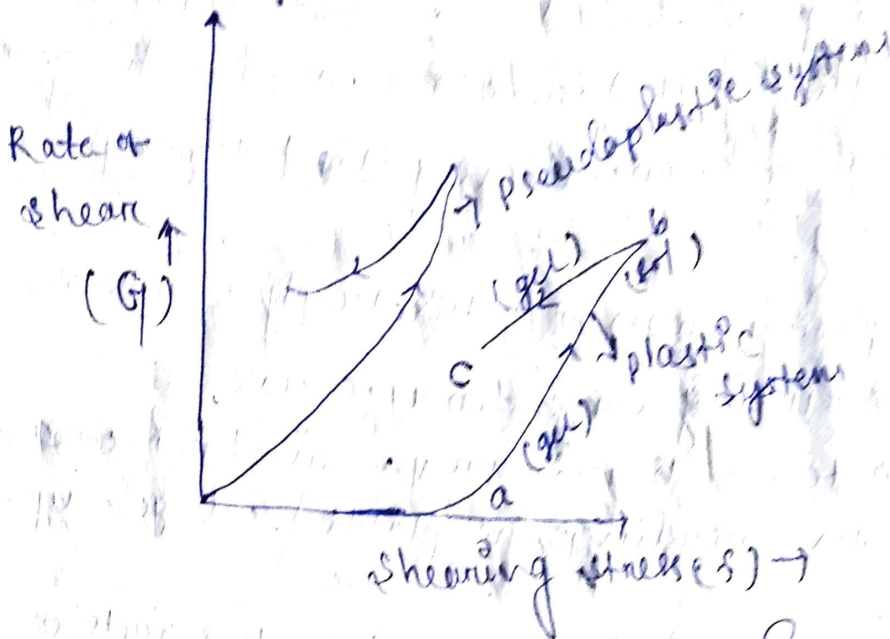 Rate of
shear
(G)
pseudoplastic system
b
(gel)
(sol)
plastic
system
c
(gel)
a
Shearing stress (S) →